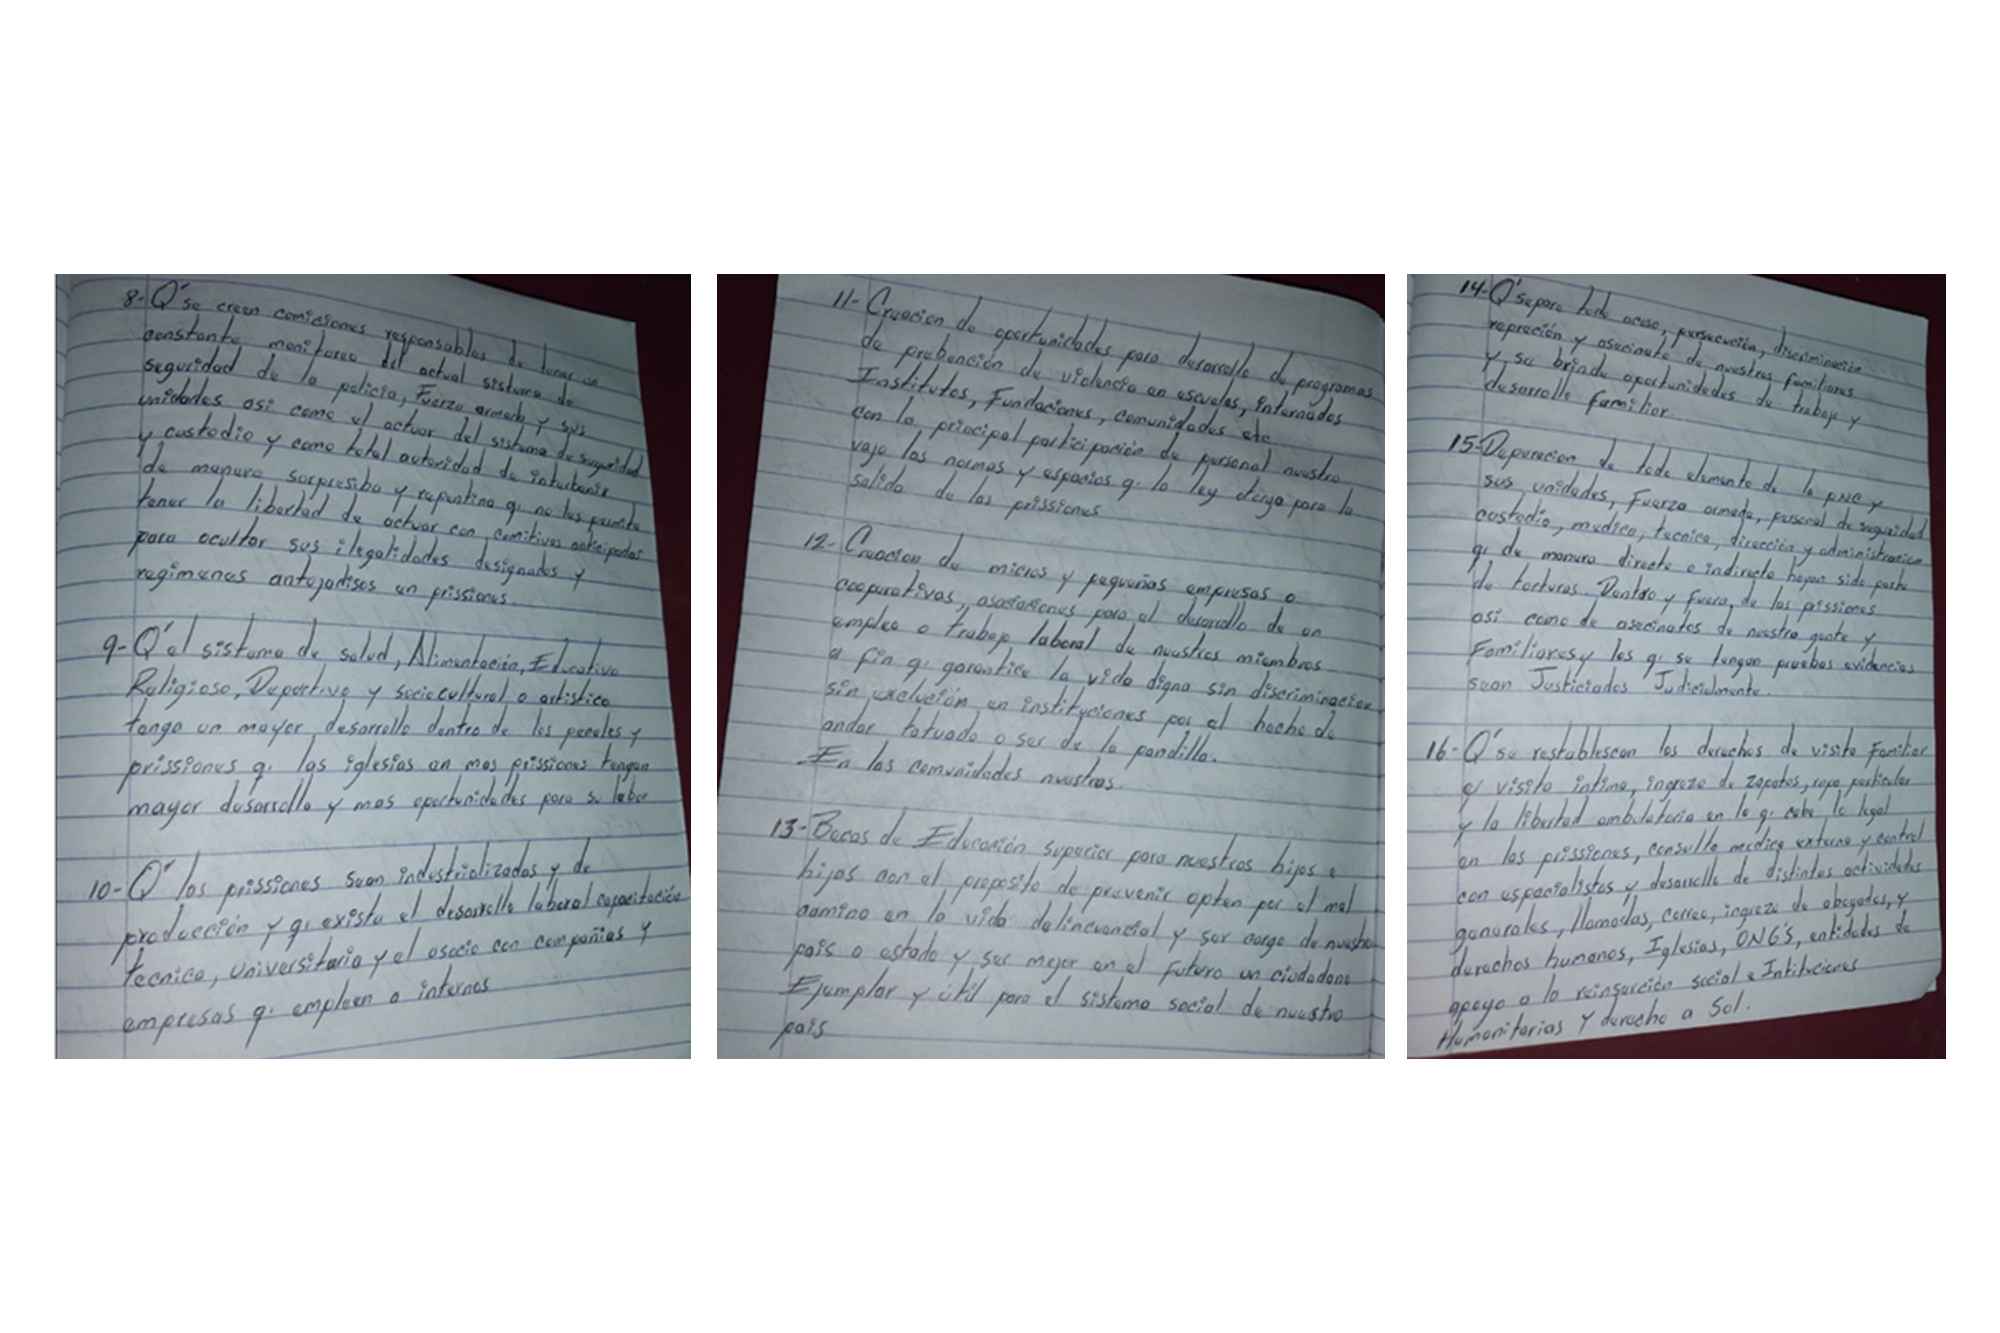 8- Q' se creen comiciones responsables de tener un
constante monitoreo del actual sistema de
seguridad de la policia, Fuerza armada y sus
unidades asi como el actuar del sistema de seguridad
y custodio y como total autoridad de interbenir
de manera sorpresiba y repentina q. no les permita
tener la libertad de actuar con comitivas anticipadas
para ocultar sus ilegalidades designados y
regimenes antojadisos en prissiones.
9- Q' el sistema de salud, Alimentación, Educativo
Religioso, Deportivo y sociocultural o artistico
tenga un mayor desarrollo dentro de los penales y
prissiones q. las iglesias en mas prissiones tengan
mayor desarrollo y mas oportunidades para su labor
10- Q' las prissiones sean industrializadas y de
producción y q. exista el desarrollo laboral capacitación
tecnica, universitaria y el asocio con compañias y
empresas q. empleen a internos
11- Creacion de oportunidades para desarrollo de programas
de prebención de violencia en escuelas, internados
Institutos, Fundaciones, comunidades etc
con la principal participación de personal nuestro
vajo las normas y espacios q. la ley dirija para la
salida de las prissiones
12- Creacion de micros y pequeñas empresas o
cooperativas, asociaciones para el desarrollo de un
empleo o trabajo laboral de nuestros miembros
a fin q. garantice la vida digna sin discriminacion
sin exclución en instituciones por el hecho de
andar tatuado o ser de la pandilla.
En las comunidades nuestras.
13- Becas de Educación superior para nuestros hijos e
hijas con el proposito de prevenir opten por el mal
camino en la vida delincuencial y ser cargo de nuestro
pais o estado y ser mejor en el futuro un ciudadano
Ejemplar y útil para el sistema social de nuestro
pais
14- Q' se pare todo acoso, persecución, discriminación
repreción y asecinato de nuestros familiares
y se brinde oportunidades de trabajo y
desarrollo familiar.
15- Depuracion de todo elemento de la PNC y
sus unidades, Fuerza armada, personal de seguridad
custodio, medico, tecnico, dirección y administrativo
q. de manera directa o indirecta hayan sido parte
de torturas. Dentro y Fuera, de las prissiones
asi como de asecinatos de nuestra gente y
Familiares y los q. se tengan pruebas evidencias
sean Justiciados Judicialmente.
16- Q' se restablescan los derechos de visita Familiar
y visita intima, ingreso de zapatos, ropa particular
y la libertad ambulatoria en lo q. cabe lo legal
en las prissiones, consulta medica externa y control
con especialistas y desarrollo de distintas actividades
generales, llamadas, correo, ingreso de abogados, y
derechos humanos, Iglesias, ONG'S, entidades de
apoyo a la reinserción social e Intituciones
Humanitarias y derecho a Sol.